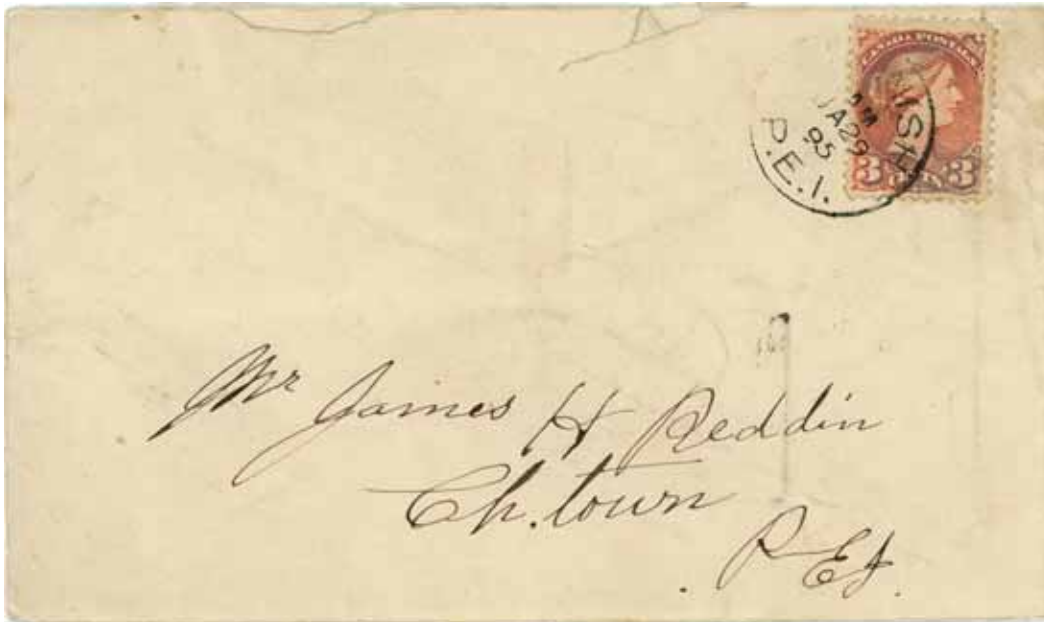 CANADA POSTAGE
3 CENTS 3
AM
JA 29
95
P.E.I.
Mr James H Reddin
Ch.town
P E I.